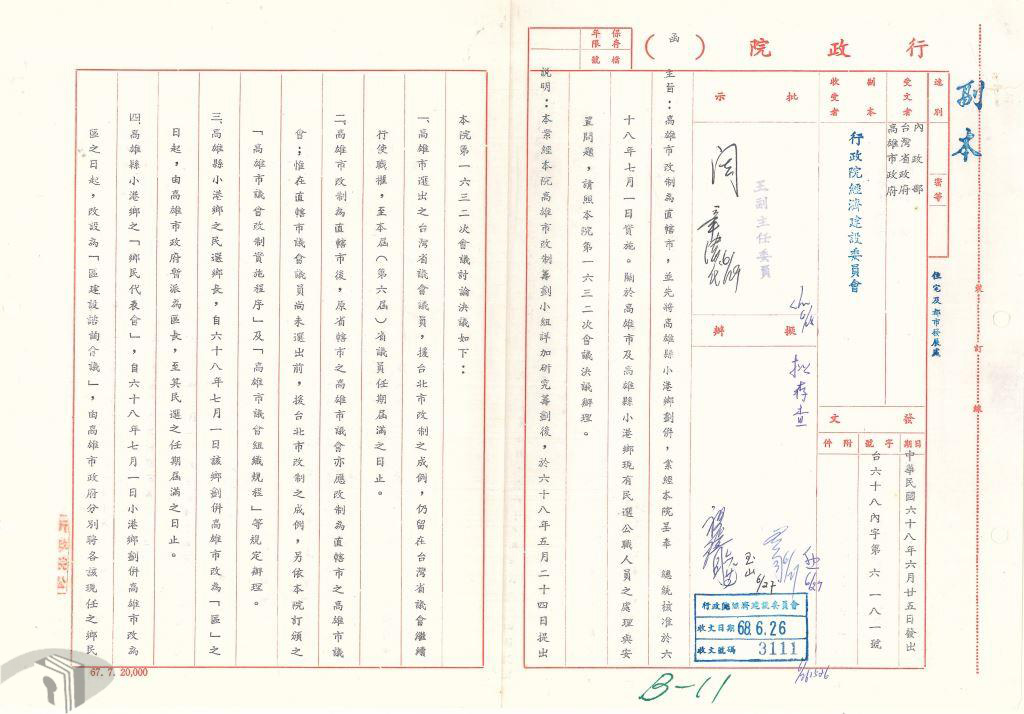 副本
行政院（函）
保存年限
檔號
速別
密等
受文者
內政部
台灣省政府
高雄市政府
副本收受者
行政院經濟建設委員會
住宅及都市發展處
批示
擬辦
王副主任委員
閱
6/29
批存查
玉山 6/27
6/27
發文
日期
中華民國六十八年六月廿五日發出
字號
台六十八內字第六一八一號
附件
裝訂線
主旨：高雄市改制為直轄市，並先將高雄縣小港鄉劃併，業經本院呈奉　總統核准於六
十八年七月一日實施。關於高雄市及高雄縣小港鄉現有民選公職人員之處理與安
置問題，請照本院第一六三二次會議決議辦理。
說明：本案經本院高雄市改制籌劃小組詳加研究籌劃後，於六十八年五月二十四日提出
行政院經濟建設委員會
收文日期 68.6.26
收文號碼 3111
B-11
本院第一六三二次會議討論決議如下：
一、高雄市選出之台灣省議會議員，援台北市改制之成例，仍留在台灣省議會繼續
行使職權，至本屆（第六屆）省議員任期屆滿之日止。
二、高雄市改制為直轄市後，原省轄市之高雄市議會亦應改制為直轄市之高雄市議
會；惟在直轄市議會議員尚未選出前，援台北市改制之成例，另依本院訂頒之
「高雄市議會改制實施程序」及「高雄市議會組織規程」等規定辦理。
三、高雄縣小港鄉之民選鄉長，自六十八年七月一日該鄉劃併高雄市改為「區」之
日起，由高雄市政府暫派為區長，至其民選之任期屆滿之日止。
四、高雄縣小港鄉之「鄉民代表會」，自六十八年七月一日小港鄉劃併高雄市改為
區之日起，改設為「區建設諮詢會議」，由高雄市政府分別聘各該現任之鄉民
67. 7. 20,000